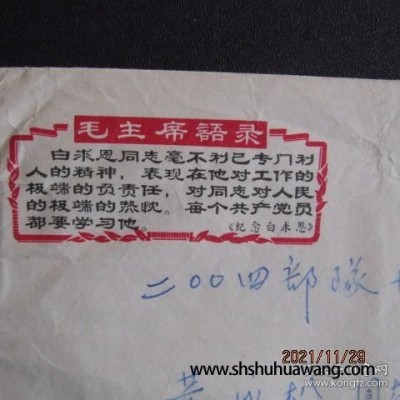 毛主席語录
白求恩同志毫不利己专门利
人的精神，表现在他对工作的
极端的负责任，对同志对人民
的极端的热忱。每个共产党员
都要学习他。《纪念白求恩》
二00四部隊
2021/11/29
www.shshuhuawang.com
www.kongfz.com